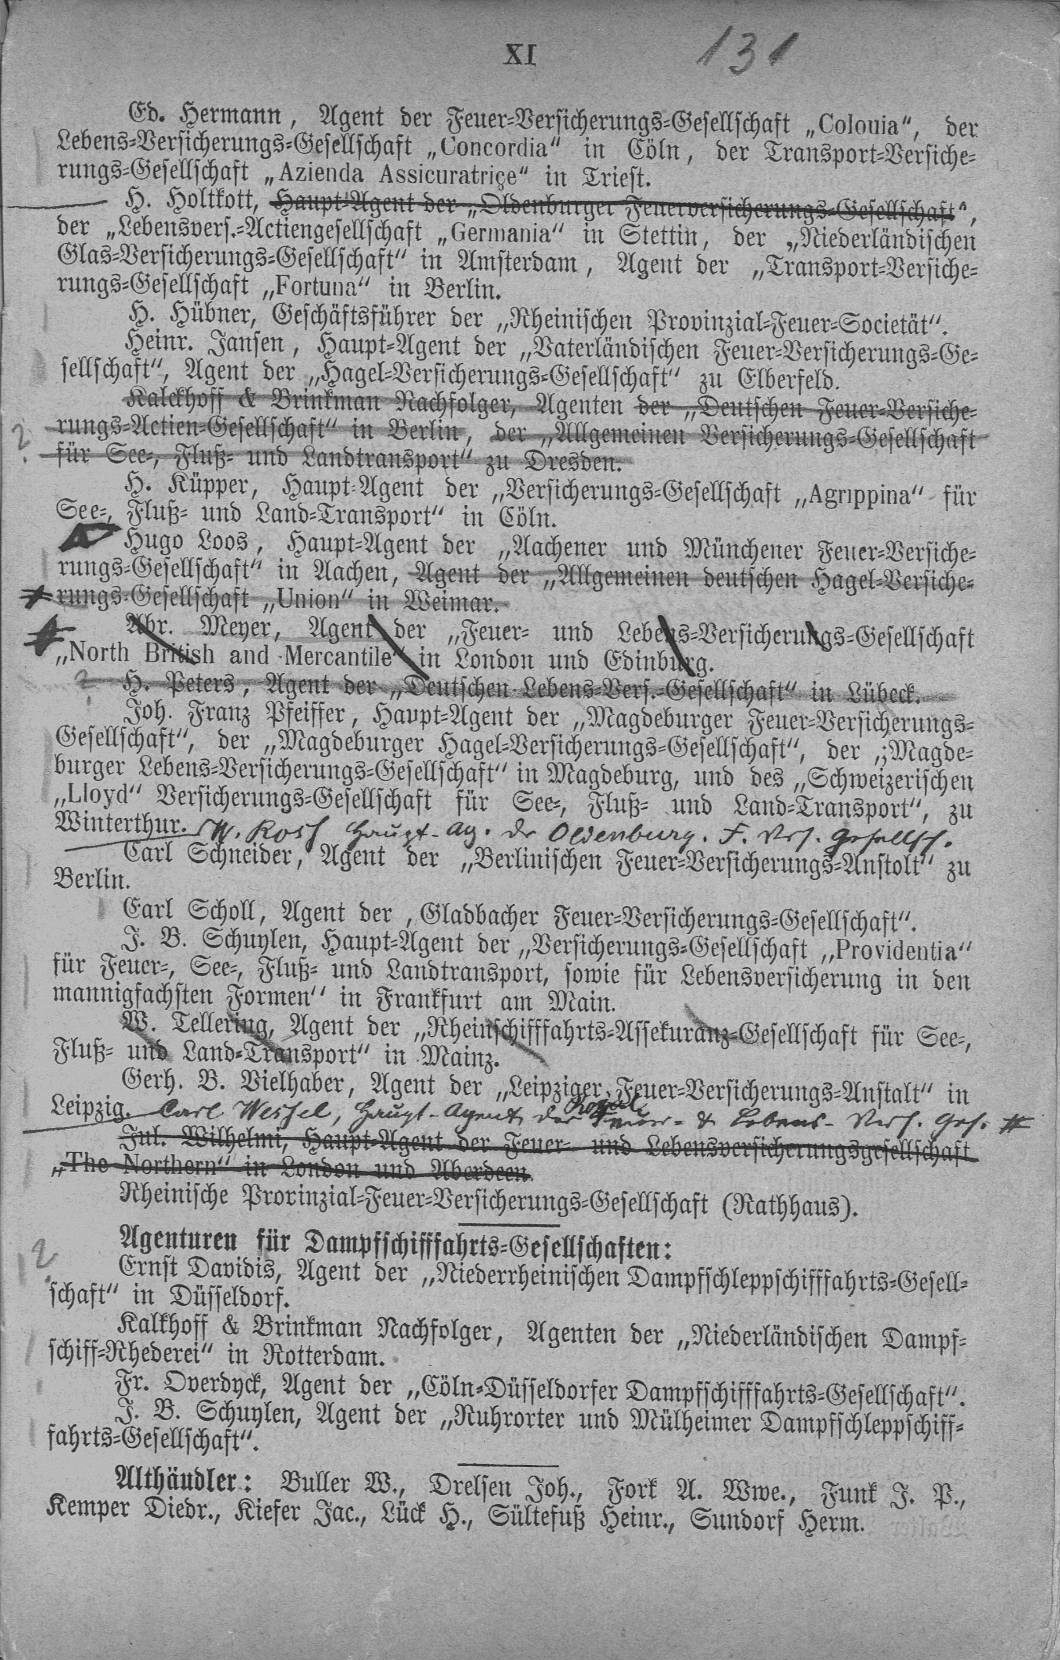 XI 131
Ed. Hermann, Agent der Feuer-Versicherungs-Gesellschaft „Colonia“, der
Lebens-Versicherungs-Gesellschaft „Concordia“ in Cöln, der Transport-Versiche-
rungs-Gesellschaft „Azienda Assicuratrice“ in Triest.
H. Holtkott, Haupt-Agent der „Oldenburger Feuerversicherungs-Gesellschaft“,
der „Lebensvers.-Actiengesellschaft „Germania“ in Stettin, der „Niederländischen
Glas-Versicherungs-Gesellschaft“ in Amsterdam, Agent der „Transport-Versiche-
rungs-Gesellschaft „Fortuna“ in Berlin.
H. Hübner, Geschäftsführer der „Rheinischen Provinzial-Feuer-Societät“.
Heinr. Jansen, Haupt-Agent der „Vaterländischen Feuer-Versicherungs-Ge-
sellschaft“, Agent der „Hagel-Versicherungs-Gesellschaft“ zu Elberfeld.
Kalckhoff & Brinkman Nachfolger, Agenten der „Deutschen Feuer-Versiche-
? rungs-Actien-Gesellschaft“ in Berlin, der „Allgemeinen Versicherungs-Gesellschaft
für See-, Fluß- und Landtransport“ zu Dresden.
H. Küpper, Haupt-Agent der „Versicherungs-Gesellschaft „Agrippina“ für
See-, Fluß- und Land-Transport“ in Cöln.
Hugo Loos, Haupt-Agent der „Aachener und Münchener Feuer-Versiche-
rungs-Gesellschaft“ in Aachen, Agent der „Allgemeinen deutschen Hagel-Versiche-
rungs-Gesellschaft „Union“ in Weimar.
Abr. Meyer, Agent der „Feuer- und Lebens-Versicherungs-Gesellschaft
„North British and Mercantile“ in London und Edinburg.
? H. Peters, Agent der „Deutschen Lebens-Vers.-Gesellschaft“ in Lübeck.
Joh. Franz Pfeiffer, Haupt-Agent der „Magdeburger Feuer-Versicherungs-
Gesellschaft“, der „Magdeburger Hagel-Versicherungs-Gesellschaft“, der „Magde-
burger Lebens-Versicherungs-Gesellschaft“ in Magdeburg, und des „Schweizerischen
„Lloyd“ Versicherungs-Gesellschaft für See-, Fluß- und Land-Transport“, zu
Winterthur. W. Rosh Haupt-Ag. der Oldenburg. F. Vers. Gesellsch.
Carl Schneider, Agent der „Berlinischen Feuer-Versicherungs-Anstolt“ zu
Berlin.
Carl Scholl, Agent der „Gladbacher Feuer-Versicherungs-Gesellschaft“.
J. B. Schuylen, Haupt-Agent der „Versicherungs-Gesellschaft „Providentia“
für Feuer-, See-, Fluß- und Landtransport, sowie für Lebensversicherung in den
mannigfachsten Formen“ in Frankfurt am Main.
W. Tellering, Agent der „Rheinschifffahrts-Assekuranz-Gesellschaft für See-,
Fluß- und Land-Transport“ in Mainz.
Gerh. B. Vielhaber, Agent der „Leipziger Feuer-Versicherungs-Anstalt“ in
Leipzig. Carl Wessel, Haupt-Agent der Royal Feuer- & Lebens-Vers. Ges.
Jul. Wilhelmi, Haupt-Agent der Feuer- und Lebensversicherungsgesellschaft
„The Northern“ in London und Aberdeen.
Rheinische Prorinzial-Feuer-Versicherungs-Gesellschaft (Rathhaus).
Agenturen für Dampfschifffahrts-Gesellschaften:
? Ernst Davidis, Agent der „Niederrheinischen Dampfschleppschifffahrts-Gesell-
schaft“ in Düsseldorf.
Kalkhoff & Brinkman Nachfolger, Agenten der „Niederländischen Dampf-
schiff-Rhederei“ in Rotterdam.
Fr. Overdyck, Agent der „Cöln-Düsseldorfer Dampfschifffahrts-Gesellschaft“.
J. B. Schuylen, Agent der „Ruhrorter und Mülheimer Dampfschleppschiff-
fahrts-Gesellschaft“.
Althändler: Buller W., Drelsen Joh., Fork A. Wwe., Funk J. P.,
Kemper Diedr., Kiefer Jac., Lück H., Sültefuß Heinr., Sundorf Herm.